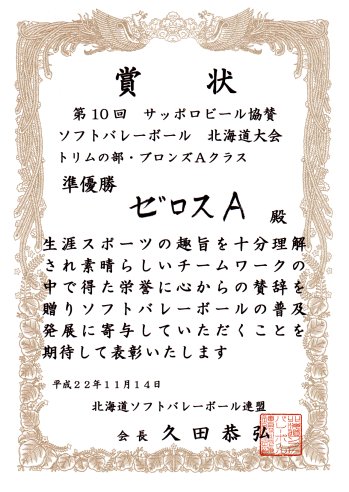 賞 状
第10回 サッポロビール協賛
ソフトバレーボール 北海道大会
トリムの部・ブロンズAクラス
準優勝
ゼロスA 殿
生涯スポーツの趣旨を十分理解
され素晴らしいチームワークの
中で得た栄誉に心からの賛辞を
贈りソフトバレーボールの普及
発展に寄与していただくことを
期待して表彰いたします
平成22年11月14日
北海道ソフトバレーボール連盟
会長 久田恭弘